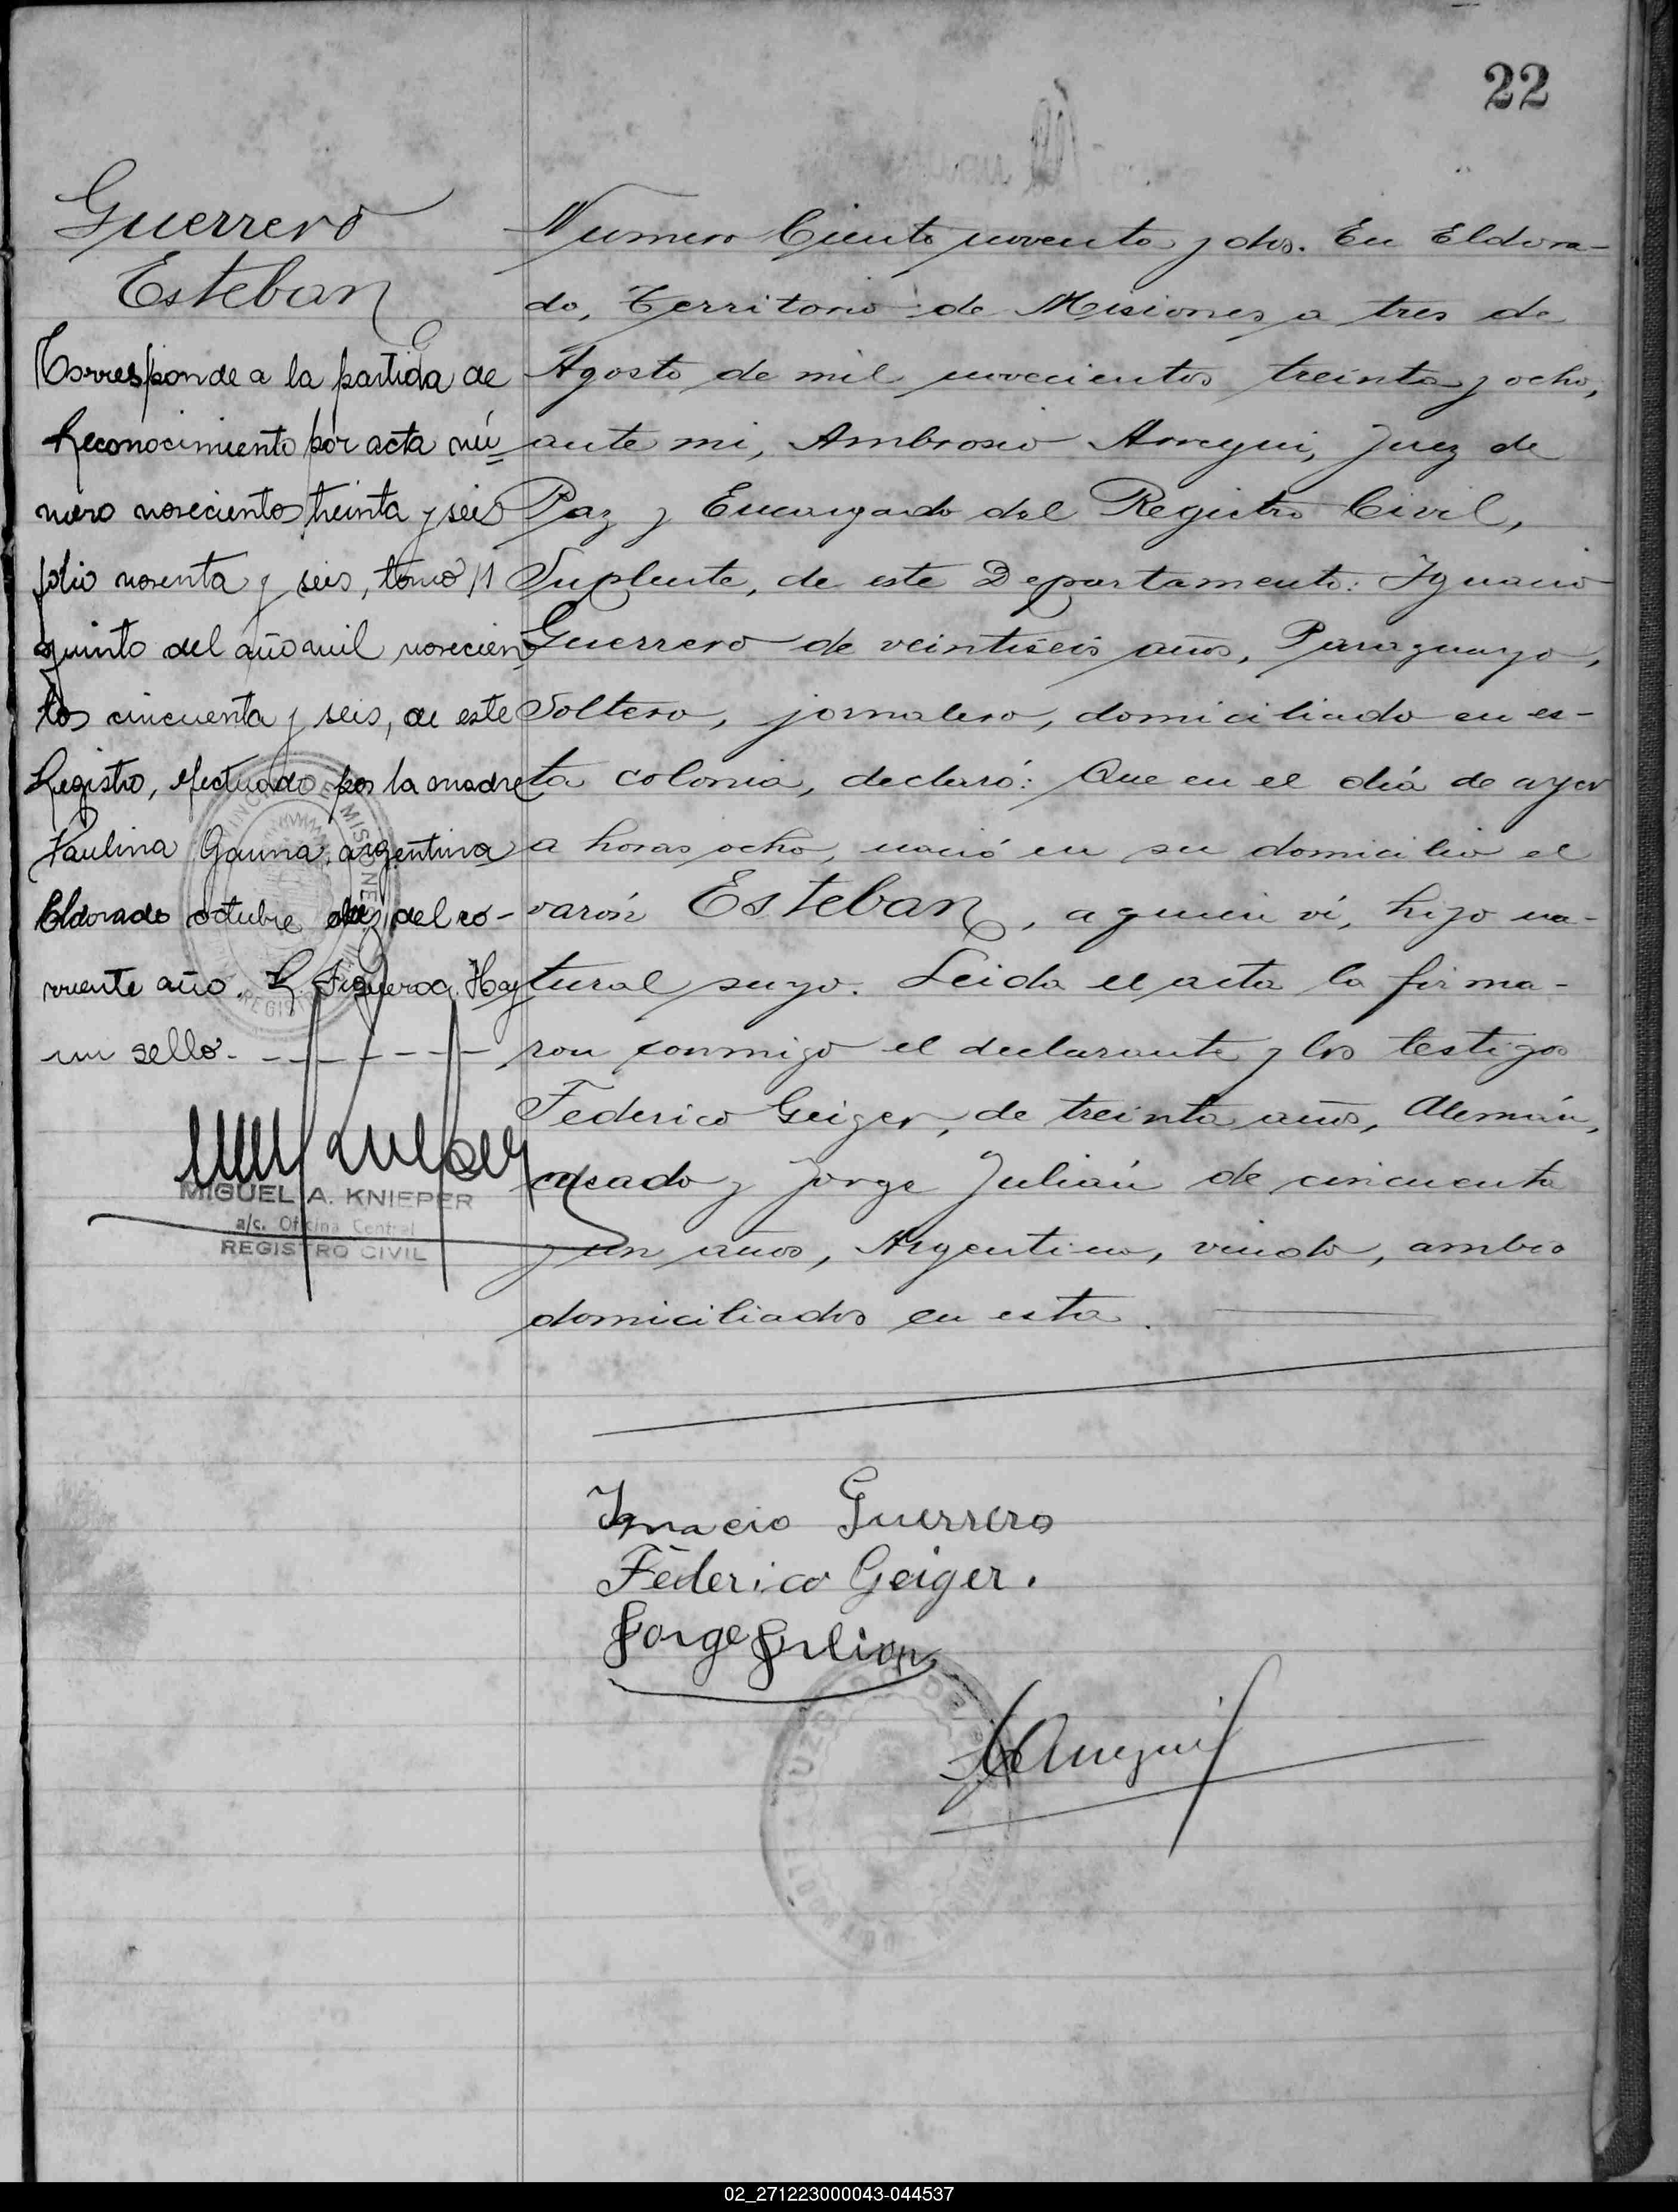 22
Guerrero
Esteban
Corresponde a la partida de
Reconocimiento por acta nú=
mero novecientos treinta y seis
folio noventa y seis, tomo
quinto del año mil novecien
tos cincuenta y seis, de este
Registro, efectuado por la madre
Paulina Gauna, argentina
Eldorado octubre diez del co-
rriente año. L. Figueroa. Hay
un sello.
MIGUEL A. KNIEPER
a/c. Oficina Central
REGISTRO CIVIL
Numero Ciento noventa y dos. En Eldora-
do, Territorio de Misiones a tres de
Agosto de mil novecientos treinta y ocho,
ante mi, Ambrosio Arregui, Juez de
Paz y Encargado del Registro Civil,
Suplente, de este Departamento: Ignacio
Guerrero de veintiseis años, Paraguayo,
Soltero, jornalero, domiciliado en es-
ta colonia, declaró: Que en el día de ayer
a horas ocho, nació en su domicilio el
varón Esteban, a quien ví, hijo na-
tural suyo. Leida el acta la firma-
ron conmigo el declarante y los testigos
Federico Geiger, de treinta años, Alemán,
casado y Jorge Julián de cincuenta
y un años, Argentino, viudo, ambos
domiciliados en esta.
Ignacio Guerrero
Federico Geiger.
Jorge Julian
A Arregui
02_271223000043-044537